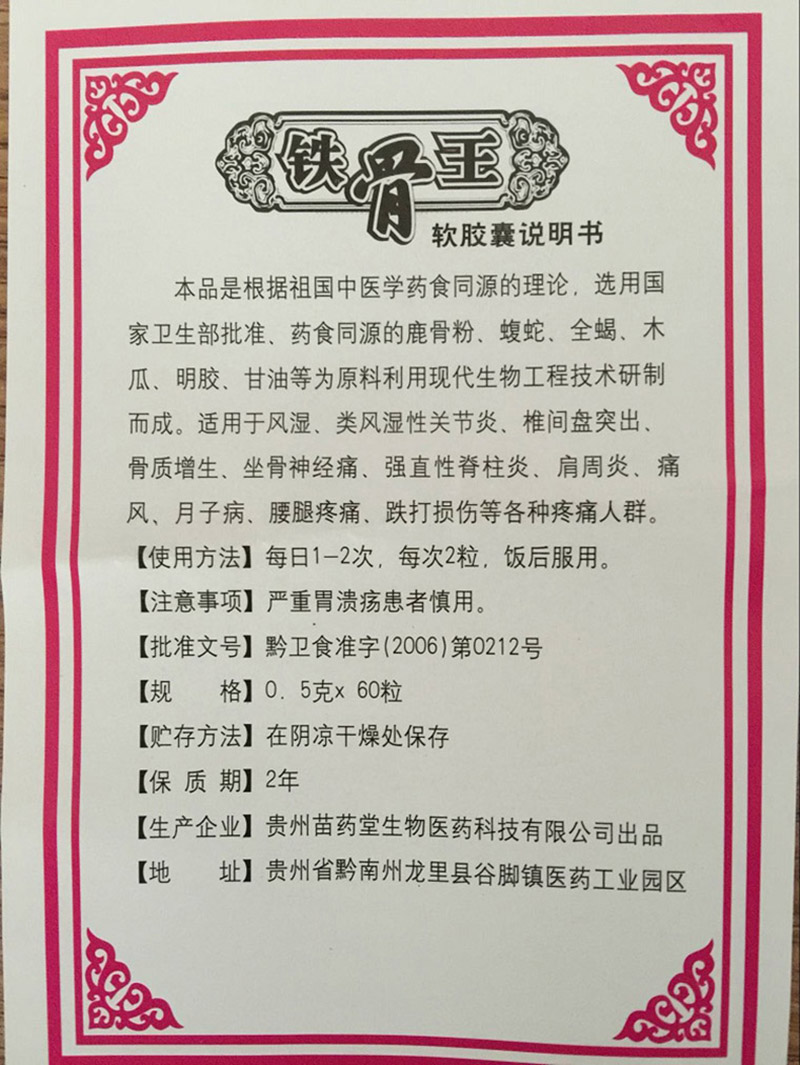 铁骨王
软胶囊说明书
本品是根据祖国中医学药食同源的理论，选用国
家卫生部批准、药食同源的鹿骨粉、蝮蛇、全蝎、木
瓜、明胶、甘油等为原料利用现代生物工程技术研制
而成。适用于风湿、类风湿性关节炎、椎间盘突出、
骨质增生、坐骨神经痛、强直性脊柱炎、肩周炎、痛
风、月子病、腰腿疼痛、跌打损伤等各种疼痛人群。
【使用方法】每日1—2次，每次2粒，饭后服用。
【注意事项】严重胃溃疡患者慎用。
【批准文号】黔卫食准字(2006)第0212号
【规　　格】0．5克x 60粒
【贮存方法】在阴凉干燥处保存
【保 质 期】2年
【生产企业】贵州苗药堂生物医药科技有限公司出品
【地　　址】贵州省黔南州龙里县谷脚镇医药工业园区